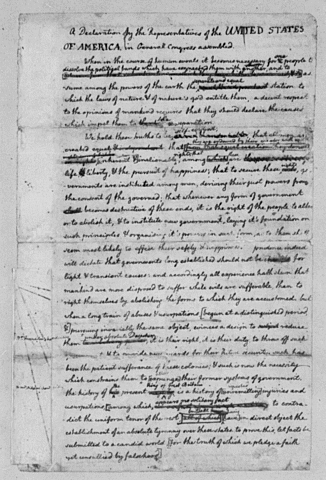 A Declaration by the Representatives of the UNITED STATES
OF AMERICA, in General Congress assembled.
When in the course of human events it becomes necessary for people to
dissolve the political bands which have connected them with another, and to
sume among the powers of the earth the separate and equal station to
which the laws of nature & of nature's god entitle them, a decent respect
to the opinions of mankind requires that they should declare the causes
which impel them to the separation.
We hold these truths to be that all men are
created equal
life & liberty, & the pursuit of happiness; that to secure these rights, go
vernments are instituted among men, deriving their just powers from
the consent of the governed; that whenever any form of government
becomes destructive of these ends, it is the right of the people to alter
or to abolish it, & to institute new government, laying it's foundation on
such principles & organising it's powers in such form, as to them shall
seem most likely to effect their safety & happiness. prudence indeed
will dictate that governments long established should not be changed for
light & transient causes: and accordingly all experience hath shewn that
mankind are more disposed to suffer while evils are sufferable, than to
right themselves by abolishing the forms to which they are accustomed. but
when a long train of abuses & usurpations [begun at a distinguished period
& pursuing invariably the same object, evinces a design to reduce
them it is their right, it is their duty, to throw off such
& to provide new guards for their future security. such has
been the patient sufferance of these colonies; & such is now the necessity
which constrains them to their former systems of government.
the history of is a history of injuries and
usurpations, to contra-
dict the uniform tenor of the rest in direct object the
establishment of an absolute tyranny over these states. to prove this, let facts be
submitted to a candid world [for the truth of which we pledge a faith
yet unsullied by falsehood]